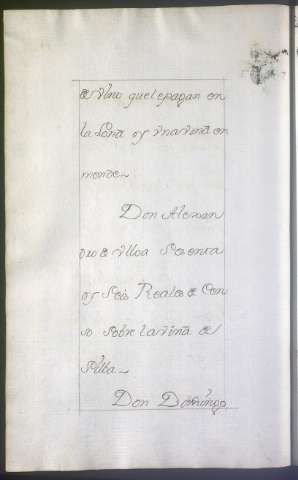 de vino que le pagan en
la Peña y vna viña en
monde~
Don Alexan
dro de vlloa Sesenta
y Seis Reales de Cen
so sobre la viña de
Don Domingo